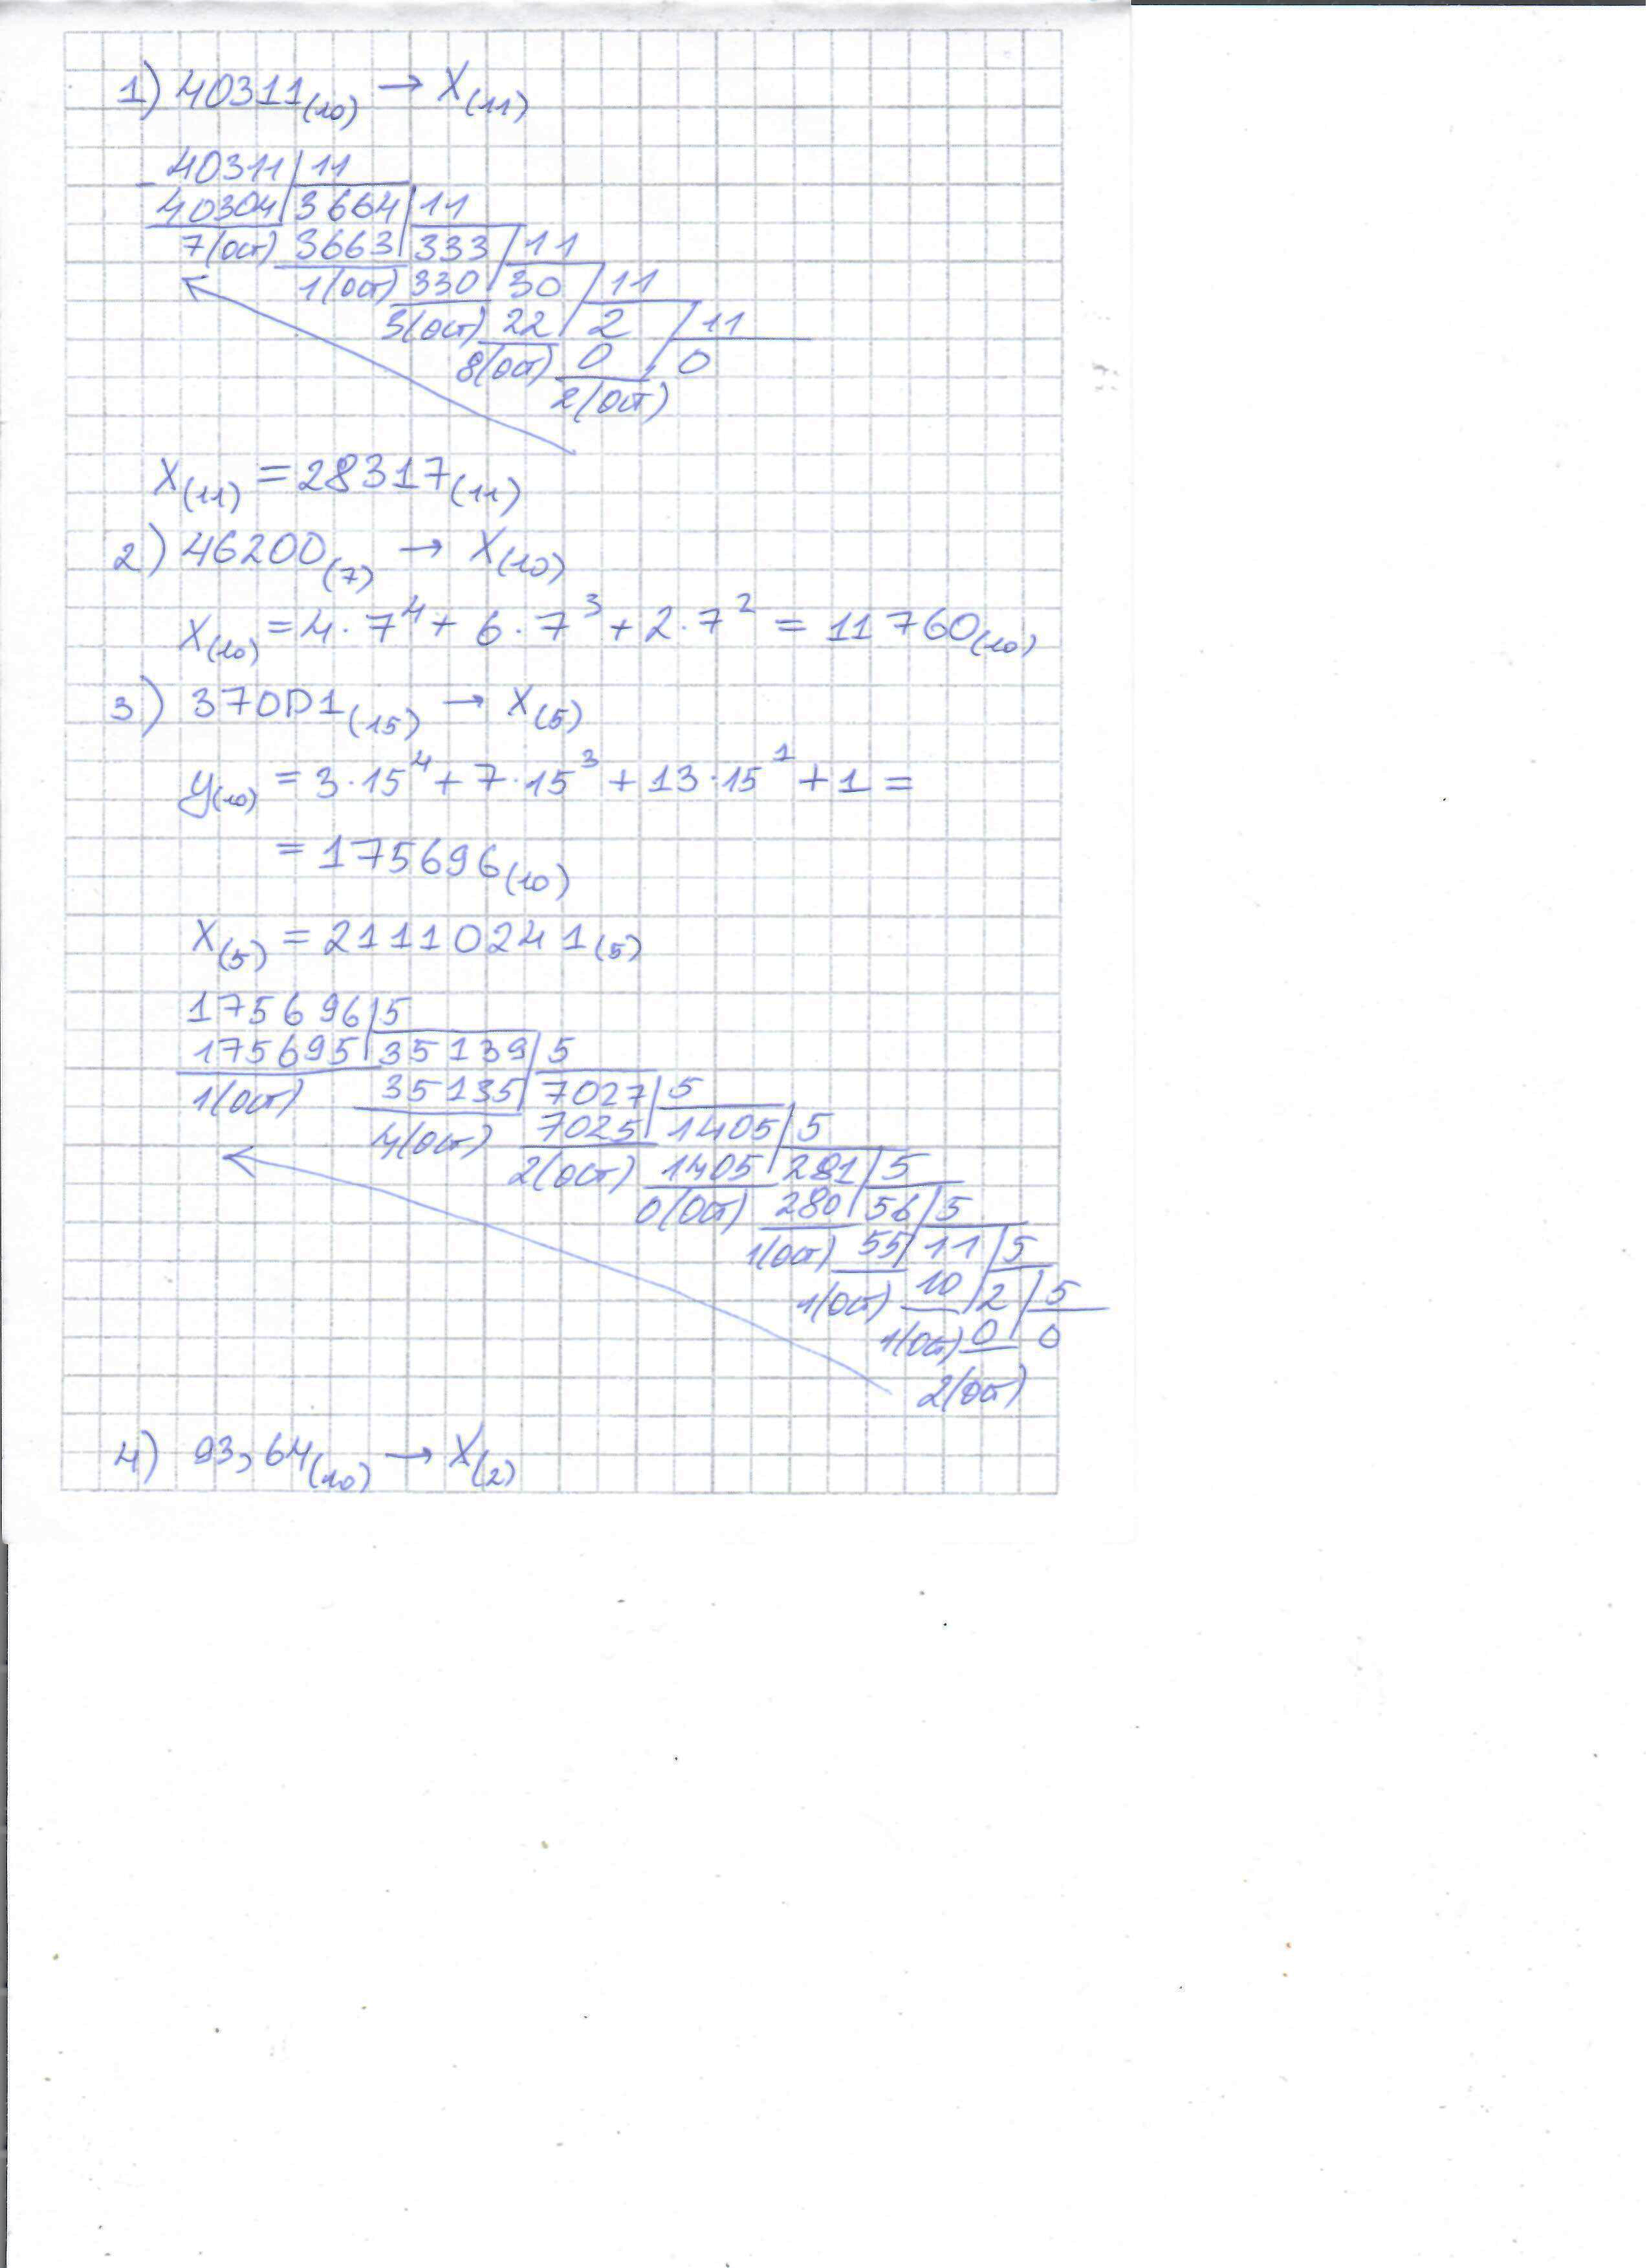 1) 40311(10) → X(11)
40311 | 11
40304 | 3664 | 11
7(ост) 3663 | 333 | 11
1(ост) 330 | 30 | 11
3(ост) 22 | 2 | 11
8(ост) 0 | 0
2(ост)
X(11) = 28317(11)
2) 46200(7) → X(10)
X(10) = 4·7^4 + 6·7^3 + 2·7^2 = 11760(10)
3) 370D1(15) → X(5)
y(10) = 3·15^4 + 7·15^3 + 13·15^1 + 1 =
= 175696(10)
X(5) = 21110241(5)
175696 | 5
175695 | 35139 | 5
1(ост) 35135 | 7027 | 5
4(ост) 7025 | 1405 | 5
2(ост) 1405 | 281 | 5
0(ост) 280 | 56 | 5
1(ост) 55 | 11 | 5
1(ост) 10 | 2 | 5
1(ост) 0 | 0
2(ост)
4) 93,64(10) → X(2)